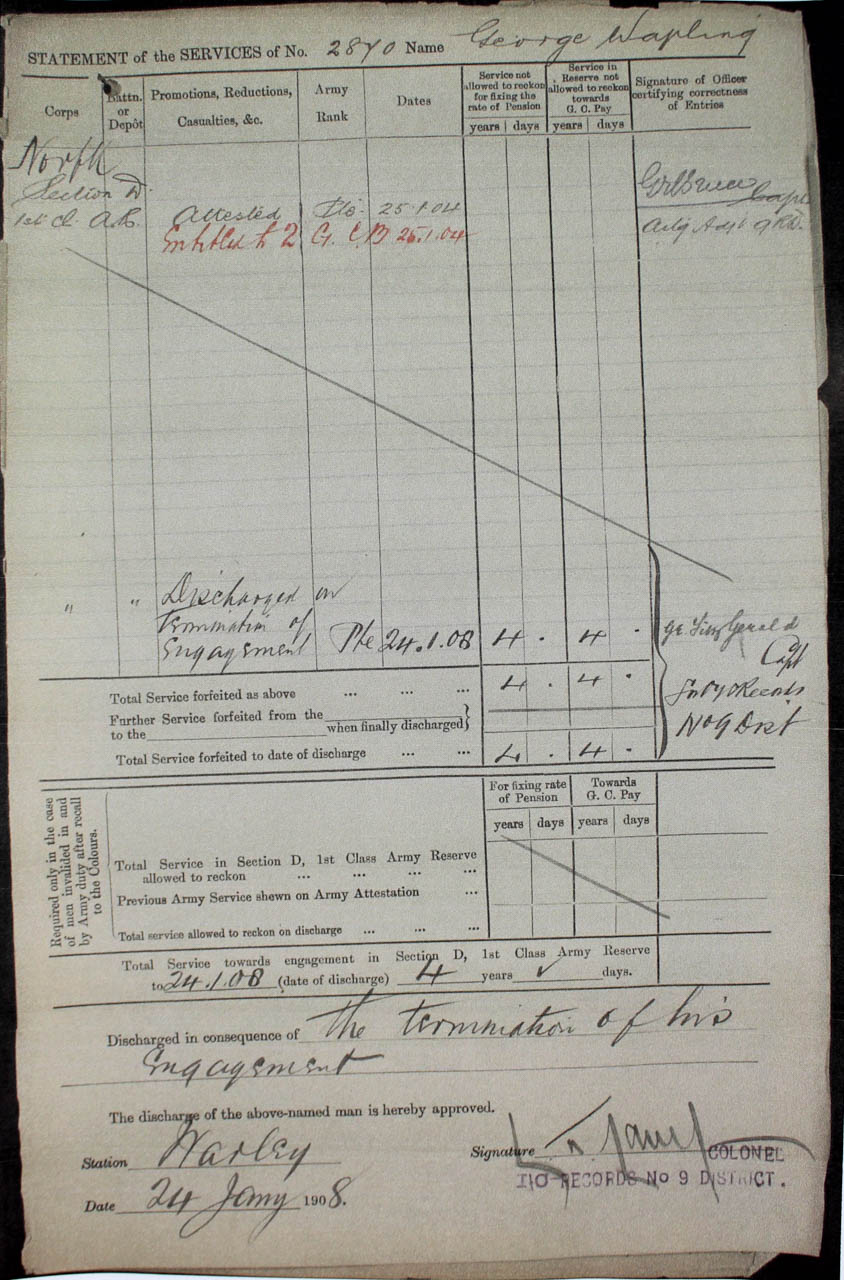 STATEMENT of the SERVICES of No. 2870 Name George Wapling
Corps
Battn. or Depôt
Promotions, Reductions, Casualties, &c.
Army Rank
Dates
Service not allowed to reckon for fixing the rate of Pension
years days
Service in Reserve not allowed to reckon towards G. C. Pay
years days
Signature of Officer certifying correctness of Entries
North
Section D.
1st Cl. A.R. Attested Pte 25.1.04
Entitled to 2 G. C. B 25.1.04
Capt
Adjt
" " Discharged on
termination of
Engagement Pte 24.1.08 4 . 4 .
Fitzgerald
Capt
Records
No 9 Dist
Total Service forfeited as above ... ... ... 4 . 4 .
Further Service forfeited from the
to the when finally discharged}
Total Service forfeited to date of discharge ... ... 4 . 4 .
Required only in the case
of men invalided in and
by Army duty after recall
to the Colours.
For fixing rate of Pension
years days
Towards G. C. Pay
years days
Total Service in Section D, 1st Class Army Reserve
allowed to reckon ... ... ... ...
Previous Army Service shewn on Army Attestation ...
Total service allowed to reckon on discharge ... ... ...
Total Service towards engagement in Section D, 1st Class Army Reserve
to 24.1.08 (date of discharge) 4 years days.
Discharged in consequence of the termination of his
Engagement
The discharge of the above-named man is hereby approved.
Station Warley
Signature
COLONEL
I/O RECORDS No 9 DISTRICT.
Date 24 Jany 1908.